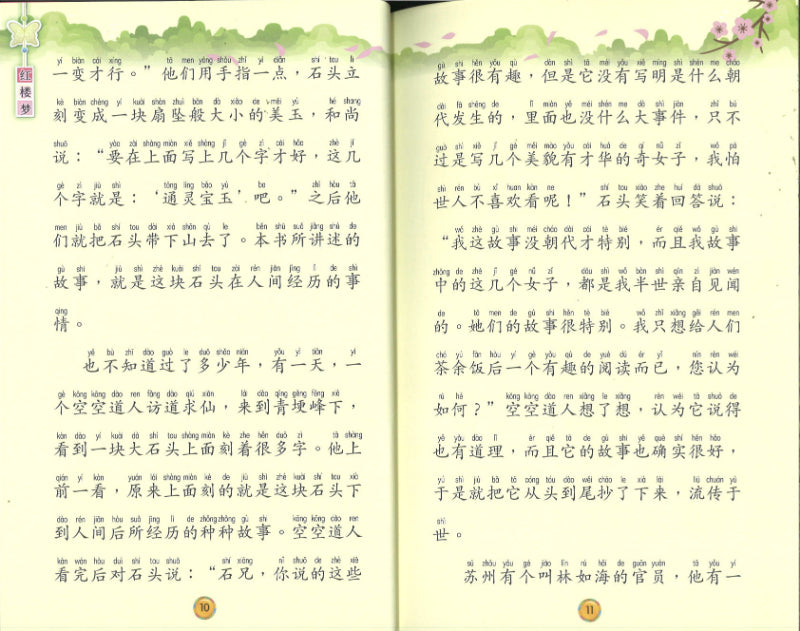 红楼梦
一变才行。”他们用手指一点，石头立
刻变成一块扇坠般大小的美玉，和尚
说：“要在上面写上几个字才好，这几
个字就是：‘通灵宝玉’吧。”之后他
们就把石头带下山去了。本书所讲述的
故事，就是这块石头在人间经历的事
情。
也不知道过了多少年，有一天，一
个空空道人访道求仙，来到青埂峰下，
看到一块大石头上面刻着很多字。他上
前一看，原来上面刻的就是这块石头下
到人间后所经历的种种故事。空空道人
看完后对石头说：“石兄，你说的这些
10
故事很有趣，但是它没有写明是什么朝
代发生的，里面也没什么大事件，只不
过是写几个美貌有才华的奇女子，我怕
世人不喜欢看呢！”石头笑着回答说：
“我这故事没朝代才特别，而且我故事
中的这几个女子，都是我半世亲自见闻
的。她们的故事很特别。我只想给人们
茶余饭后一个有趣的阅读而已，您认为
如何？”空空道人想了想，认为它说得
也有道理，而且它的故事也确实很好，
于是就把它从头到尾抄了下来，流传于
世。
苏州有个叫林如海的官员，他有一
11